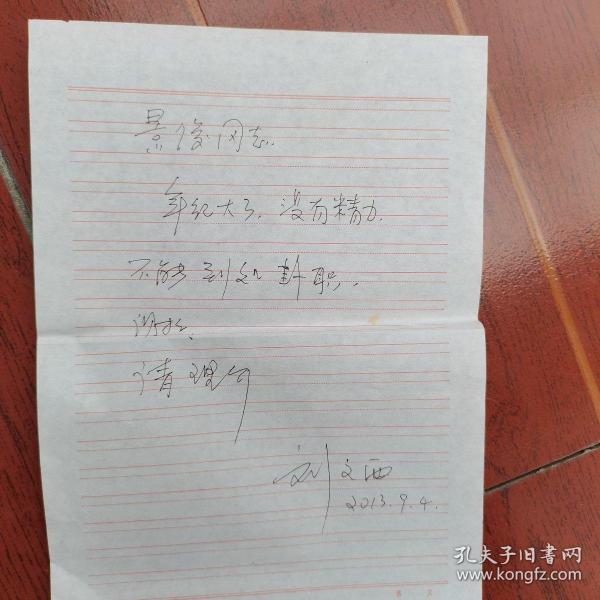 景俊同志.
年纪大了，没有精力.
不能到处兼职.
谢谢、
请理解
刘文西
2013.9.4.
孔夫子旧书网
www.kongfz.com